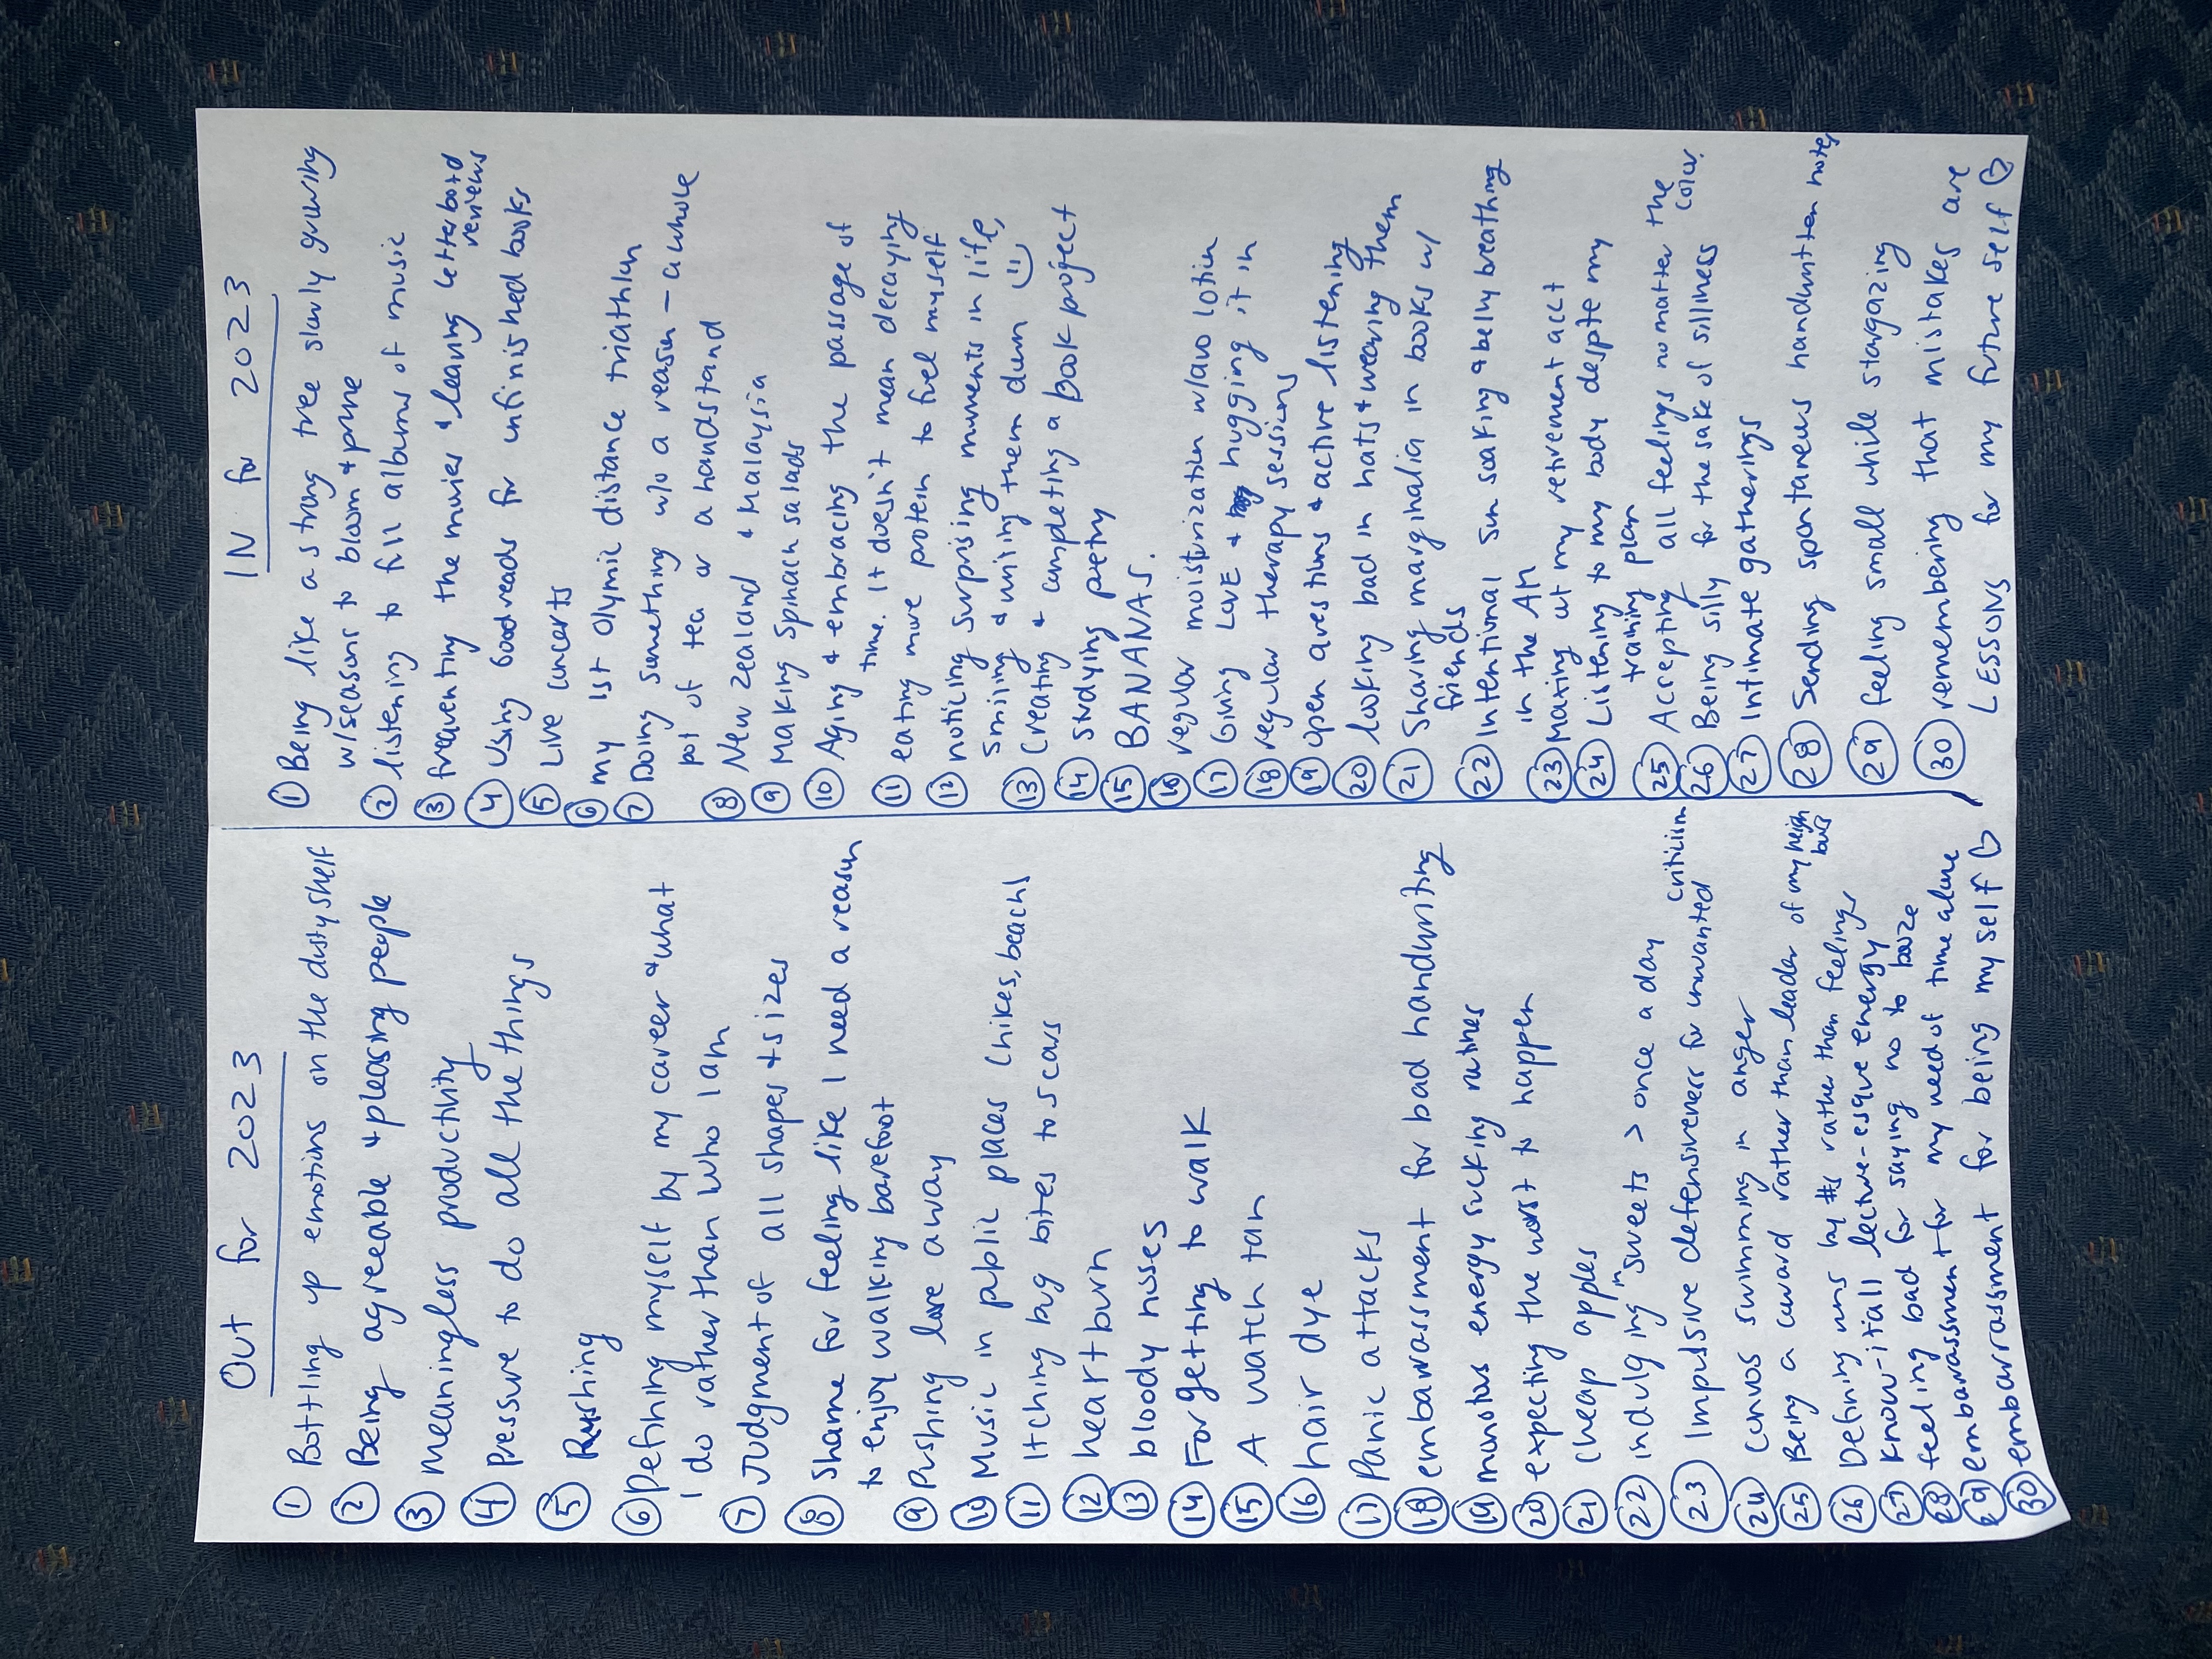 Out for 2023
① Bottling up emotions on the dusty shelf
② Being agreeable + pleasing people
③ meaningless productivity
④ Pressure to do all the things
⑤ Rushing
⑥ Defining myself by my career + what
I do rather than who I am
⑦ Judgment of all shapes + sizes
⑧ Shame for feeling like I need a reason
to enjoy walking barefoot
⑨ Pushing love away
⑩ Music in public places (hikes, beach)
⑪ Itching bug bites to scars
⑫ heartburn
⑬ bloody noses
⑭ Forgetting to walk
⑮ A watch tan
⑯ hair dye
⑰ Panic attacks
⑱ embarrassment for bad handwriting
⑲ energy sucking routines
⑳ expecting the worst to happen
㉑ cheap apples
㉒ indulging in sweets > once a day
㉓ Impulsive defensiveness for unwanted criticism
㉔ convos swimming in anger
㉕ Being a coward rather than leader of my neigh
bors
㉖ Defining runs by #s rather than feeling
㉗ know-it-all lecture-esque energy
㉘ feeling bad for saying no to booze
㉙ embarrassment for my need of time alone
㉚ embarrassment for being my self ♡
IN for 2023
① Being like a strong tree slowly growing
w/seasons to bloom + prune
② listening to full albums of music
③ frequenting the movies + leaving letterboxd
reviews
④ Using Goodreads for unfinished books
⑤ Live concerts
⑥ my 1st Olympic distance triathlon
⑦ Doing something w/o a reason — a whole
pot of tea or a handstand
⑧ New Zealand + Malaysia
⑨ Making spinach salads
⑩ Aging + embracing the passage of
time. It doesn't mean decaying
⑪ eating more protein to fuel myself
⑫ noticing surprising moments in life,
smiling + writing them down :)
⑬ Creating + completing a book project
⑭ studying poetry
⑮ BANANAS.
⑯ regular moisturization w/avo lotion
⑰ Giving LOVE + hugging it in
⑱ regular therapy sessions
⑲ open questions + active listening
⑳ looking bad in hats + wearing them
㉑ Sharing marginalia in books w/
friends
㉒ Intentional sun soaking + belly breathing
in the AM
㉓ Maxing out my retirement acct
㉔ Listening to my body despite my
training plan
㉕ Accepting all feelings no matter the
color.
㉖ Being silly for the sake of silliness
㉗ Intimate gatherings
㉘ Sending spontaneous handwritten notes
㉙ feeling small while stargazing
㉚ remembering that mistakes are
LESSONS for my future self ♡